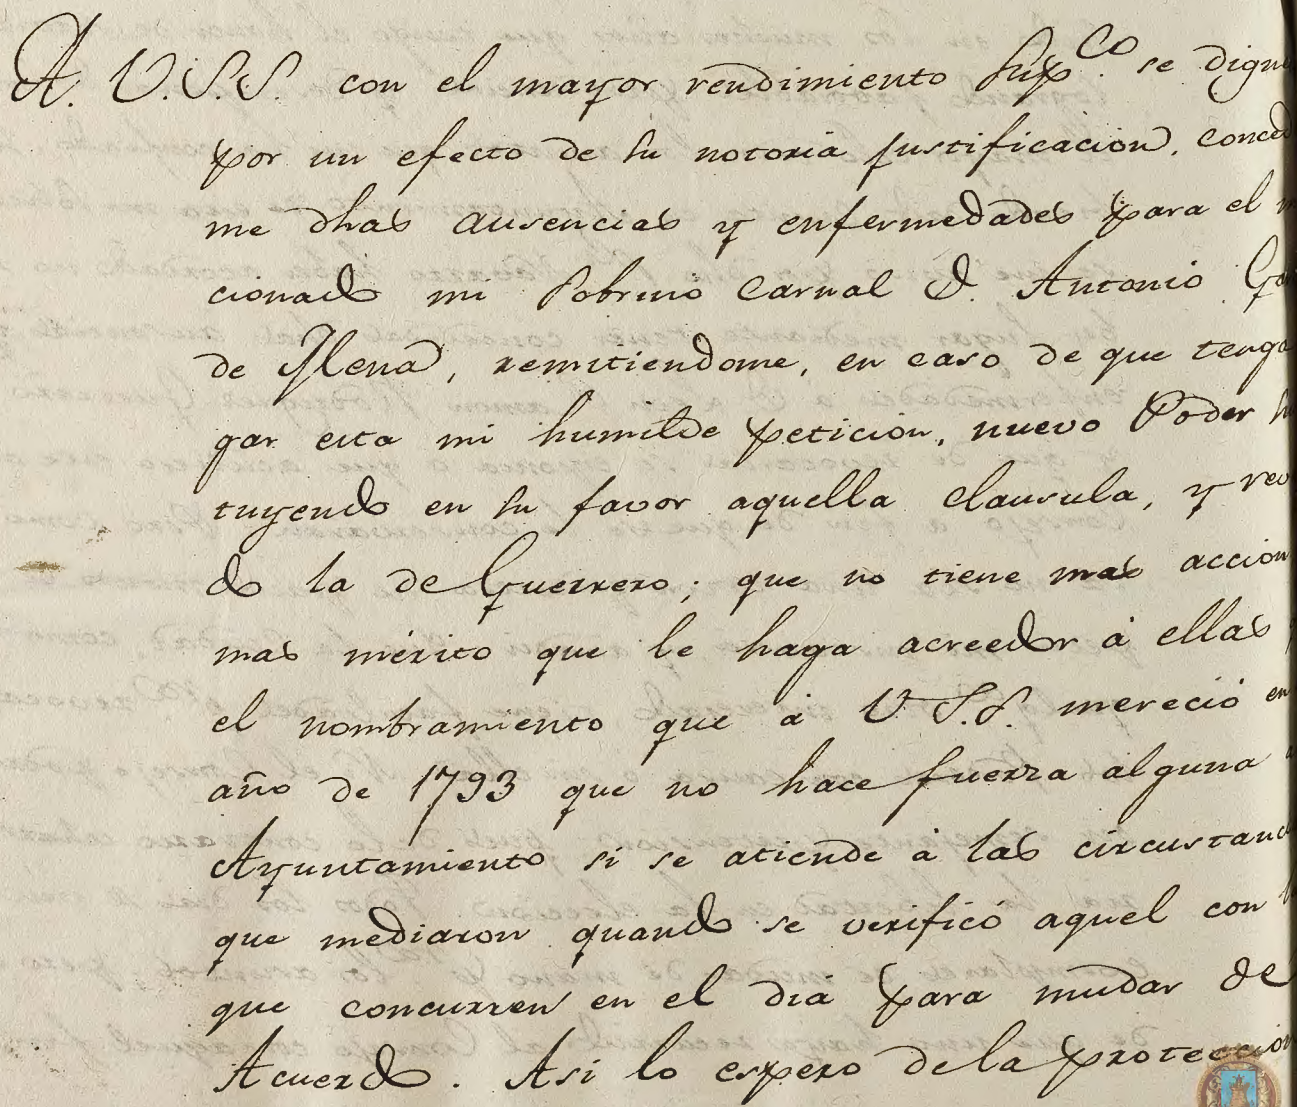 A. V.S.S. con el mayor rendimiento sup.co se digne
por un efecto de su notoria justificacion, conced
me dhas ausencias y enfermedades para el
cionado mi Sobrino Carnal D. Antonio
de Yllena, remitiendome, en caso de que tenga
gar esta mi humilde peticion, nuevo Poder
tuyendo en su favor aquella clausula, y
do la de Guerrero; que no tiene mas accion
mas mérito que le haga acreedor á ellas
el nombramiento que á V.S.S. mereció en
año de 1793 que no hace fuerza alguna
Ayuntamiento si se atiende á las circustanc
que mediaron quando se verificó aquel con
que concurren en el dia para mudar de
Acuerdo. Asi lo espero de la proteccion